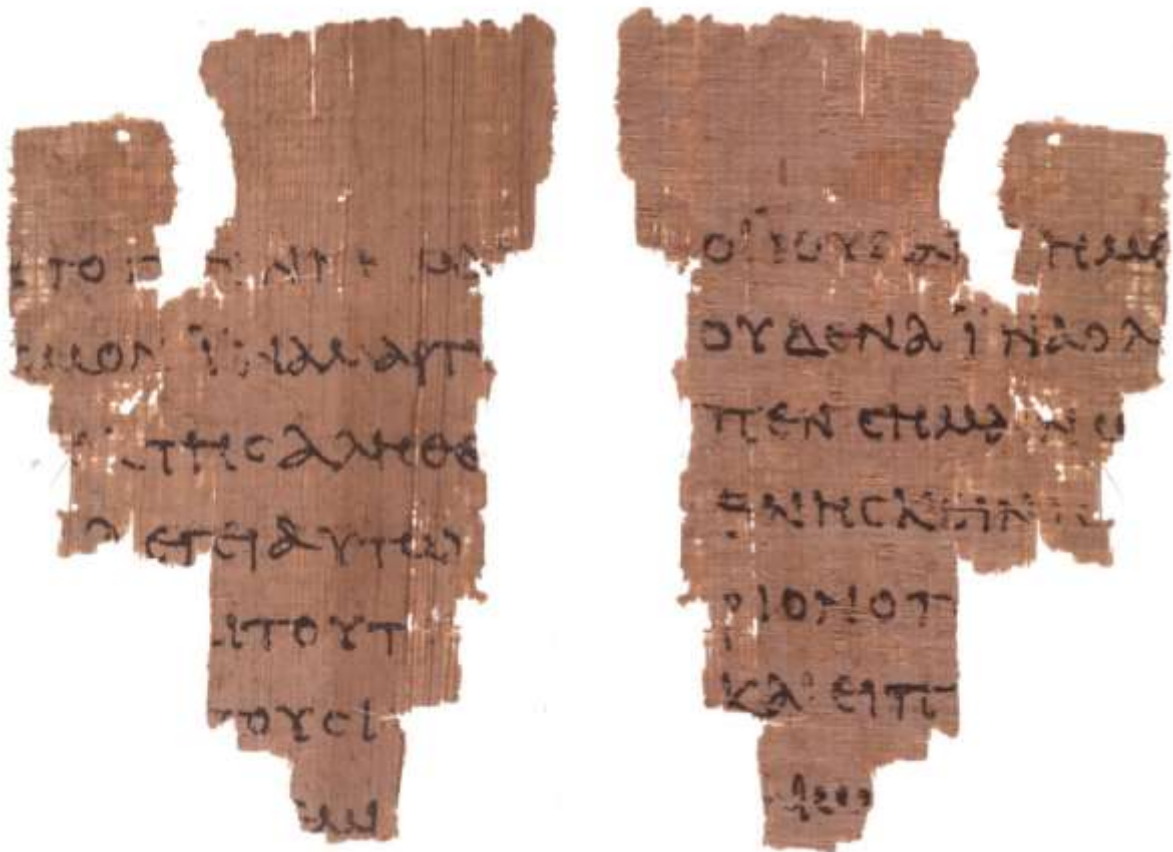 ΤΟ Γ ΝΝΗΜΑΙ
ϹΜΟΝ ΪΝΑ ΜΑΡΤΥ
ΤΗϹ ΑΛΗΘΕ
ΛΕΓΕΙ ΑΥΤΩ
ΑΙ ΤΟΥΤ
ΤΟΥϹ Ι
ΜΙ
ΟΙ ΙΟΥΔΑΙ ΗΜΕ
ΟΥΔΕΝΑ ΪΝΑ Ο Λ
ΠΕΝ ϹΗΜΑΙΝΩ
ΘΝΗϹΚΕΙΝ ΙϹ
ΡΙΟΝ Ο Π
ΚΑΙ ΕΙΠ
ΑΙΩ